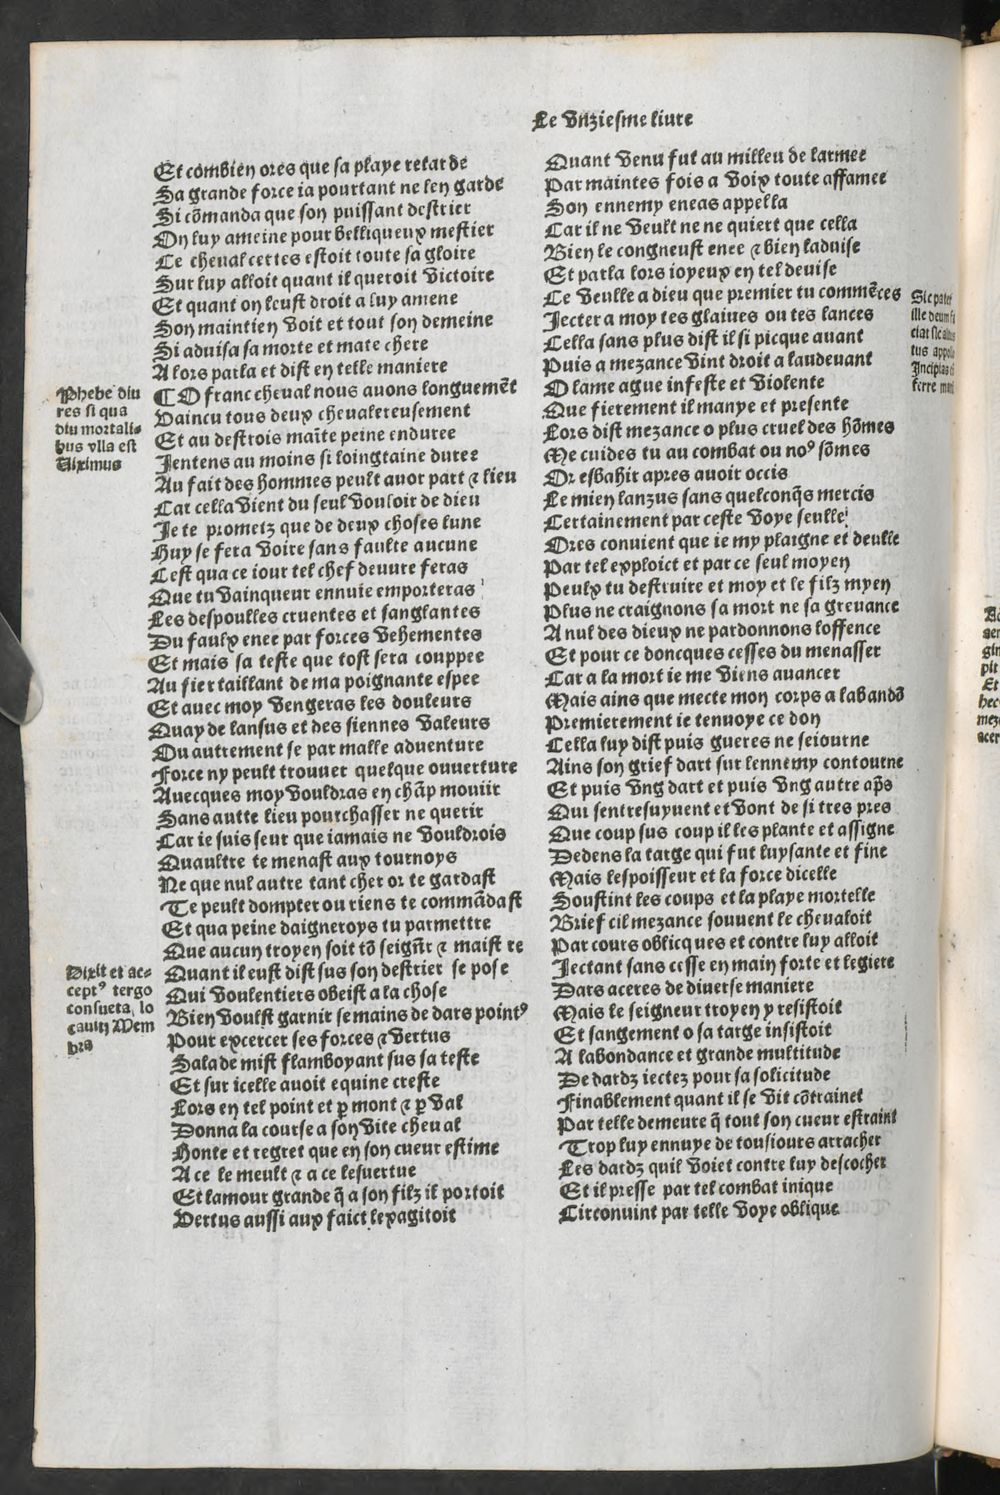 Le vnziesme liure
Et combien ores que sa playe retarde
Sa grande force ia pourtant ne len garde
Si cõmanda que son puissant destrier
On luy ameine pour belliqueux mestier
Ce cheual certes estoit toute sa gloire
Sur luy alloit quant il queroit victoire
Et quant on leust droit a luy amene
Son maintien voit et tout son demeine
Si aduisa sa morte et mate chere
Alors parla et dist en telle maniere
Phebe diu
res si qua
diu mortali-
bus vlla est
Uiximus
¶ O franc cheual nous auons longuemẽt
Vaincu tous deux cheualereusement
Et au destrois mait̃e peine enduree
Jentens au moins si loingtaine duree
Au fait des hommes peult auor part ⁊ lieu
Car cella vient du seul vouloir de dieu
Je te prometz que de deux choses lune
Huy se fera voire sans faulte aucune
Cest qua ce iour tel chef deuure feras
Que tu vainqueur ennuie emporteras
Les despoulles cruentes et sanglantes
Du faulx enee par forces vehementes
Et mais sa teste que tost sera couppee
Au fier taillant de ma poignante espee
Et auec moy vengeras les douleurs
Quay de lansus et des siennes valeurs
Ou autrement se par malle aduenture
Force ny peult trouuer quelque ouuerture
Auecques moy vouldras en chãp mourir
Sans autte lieu pourchasser ne querir
Car ie suis seur que iamais ne vouldrois
Quaultre te menast aux tournoys
Ne que nul autre tant cher or te gardast
Te peult dompter ou riens te commãdast
Et qua peine daigneroys tu parmettre
Que aucun troyen soit tõ seignr̃ ⁊ maistre
Dixit et ac-
ceptꝰ tergo
consueta lo
cauit Mem
bra
Quant il eust dist sus son destrier se pose
Qui voulentiers obeist a la chose
Bien voulst garnir se mains de dars pointꝰ
Pour excercer ses forces ⁊ vertus
Salade mist flamboyant sus sa teste
Et sur icelle auoit equine creste
Lors en tel point et ꝑ mont ⁊ ꝑ val
Donna la course a son vite cheual
Honte et regret que en son cueur estime
A ce le meult ⁊ a ce lesuertue
Et lamour grande q̃ a son filz il portoit
Vertus aussi aux faict lexagitoit
Quant venu fut au milleu de larmee
Par maintes fois a voix toute affamee
Son ennemy eneas appella
Car il ne veult ne ne quiert que cella
Bien le congneust enee ⁊ bien laduise
Et parla lors ioyeux en tel deuise
Ce veulle a dieu que premier tu commẽces
Jecter a moy tes glaiues ou tes lances
Sic pater
ille deum fa
ciat sic altus
apollo
Incipias
ferre
Cella sans plus dist il si picque auant
Puis a mezance vint droit a laudeuant
O lame ague infeste et violente
Que fierement il manye et presente
Lors dist mezance o plus cruel des hõmes
Me cuides tu au combat ou noꝰ sõmes
Or esbahir apres auoir occis
Le mien lanzus sans quelconq̃s mercis
Certainement par ceste voye seulle
Ores conuient que ie my plaigne et deulle
Par tel exploict et par ce seul moyen
Peulx tu destruire et moy et le filz myen
Plus ne craignons sa mort ne sa greuance
A nul des dieux ne pardonnons loffence
Et pour ce doncques cesses du menasser
Car a la mort ie me viens auancer
Mais ains que mecte mon corps a labandõ
Premierement ie tenuoye ce don
Cella luy dist puis gueres ne seiourne
Ains son grief dart sur lennemy contourne
Et puis vng dart et puis vng autre ap̃s
Qui sentresuyuent et vont de si tres pres
Que coup sus coup il les plante et assigne
Dedens la targe qui fut luysante et fine
Mais lespoisseur et la force dicelle
Soustint les coups et la playe mortelle
Brief cil mezance souuent le cheualoit
Par cours oblicques et contre luy alloit
Jectant sans cesse en main forte et legiere
Dars aceres de diuerse maniere
Mais le seigneur troyen y resistoit
Et sangement o sa targe insistoit
A labondance et grande multitude
De dardz iectez pour sa solicitude
Finablement quant il se vit cõtrainct
Par telle demeure q̃ tout son cueur estraint
Trop luy ennuye de tousiours arracher
Les dardz quil voiet contre luy descocher
Et il presse par tel combat inique
Circonuint par telle voye oblique